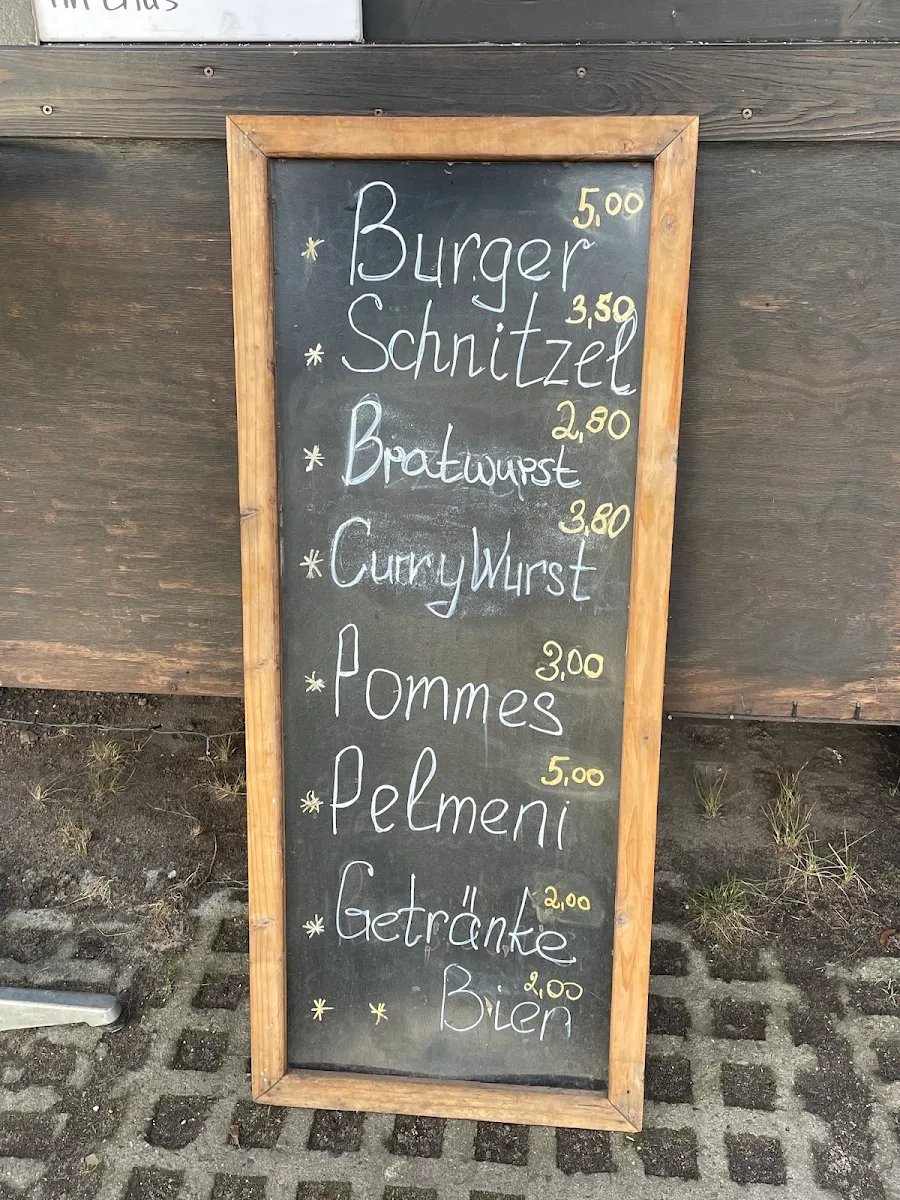 5,00
* Burger
3,50
* Schnitzel
2,80
* Bratwurst
3,80
* CurryWurst
3,00
* Pommes
5,00
* Pelmeni
2,00
* Getränke
2,00
* * Bier